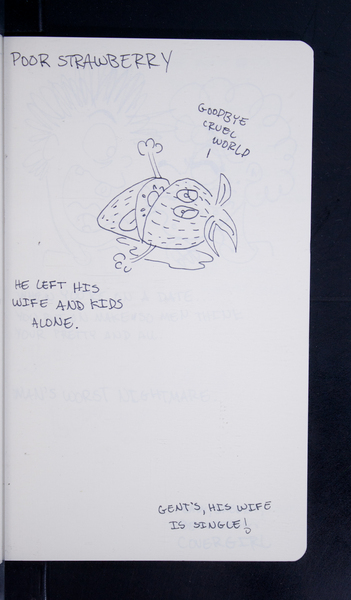 POOR STRAWBERRY
GOODBYE
CRUEL
WORLD
HE LEFT HIS
WIFE AND KIDS
ALONE.
GENT'S, HIS WIFE
IS SINGLE!